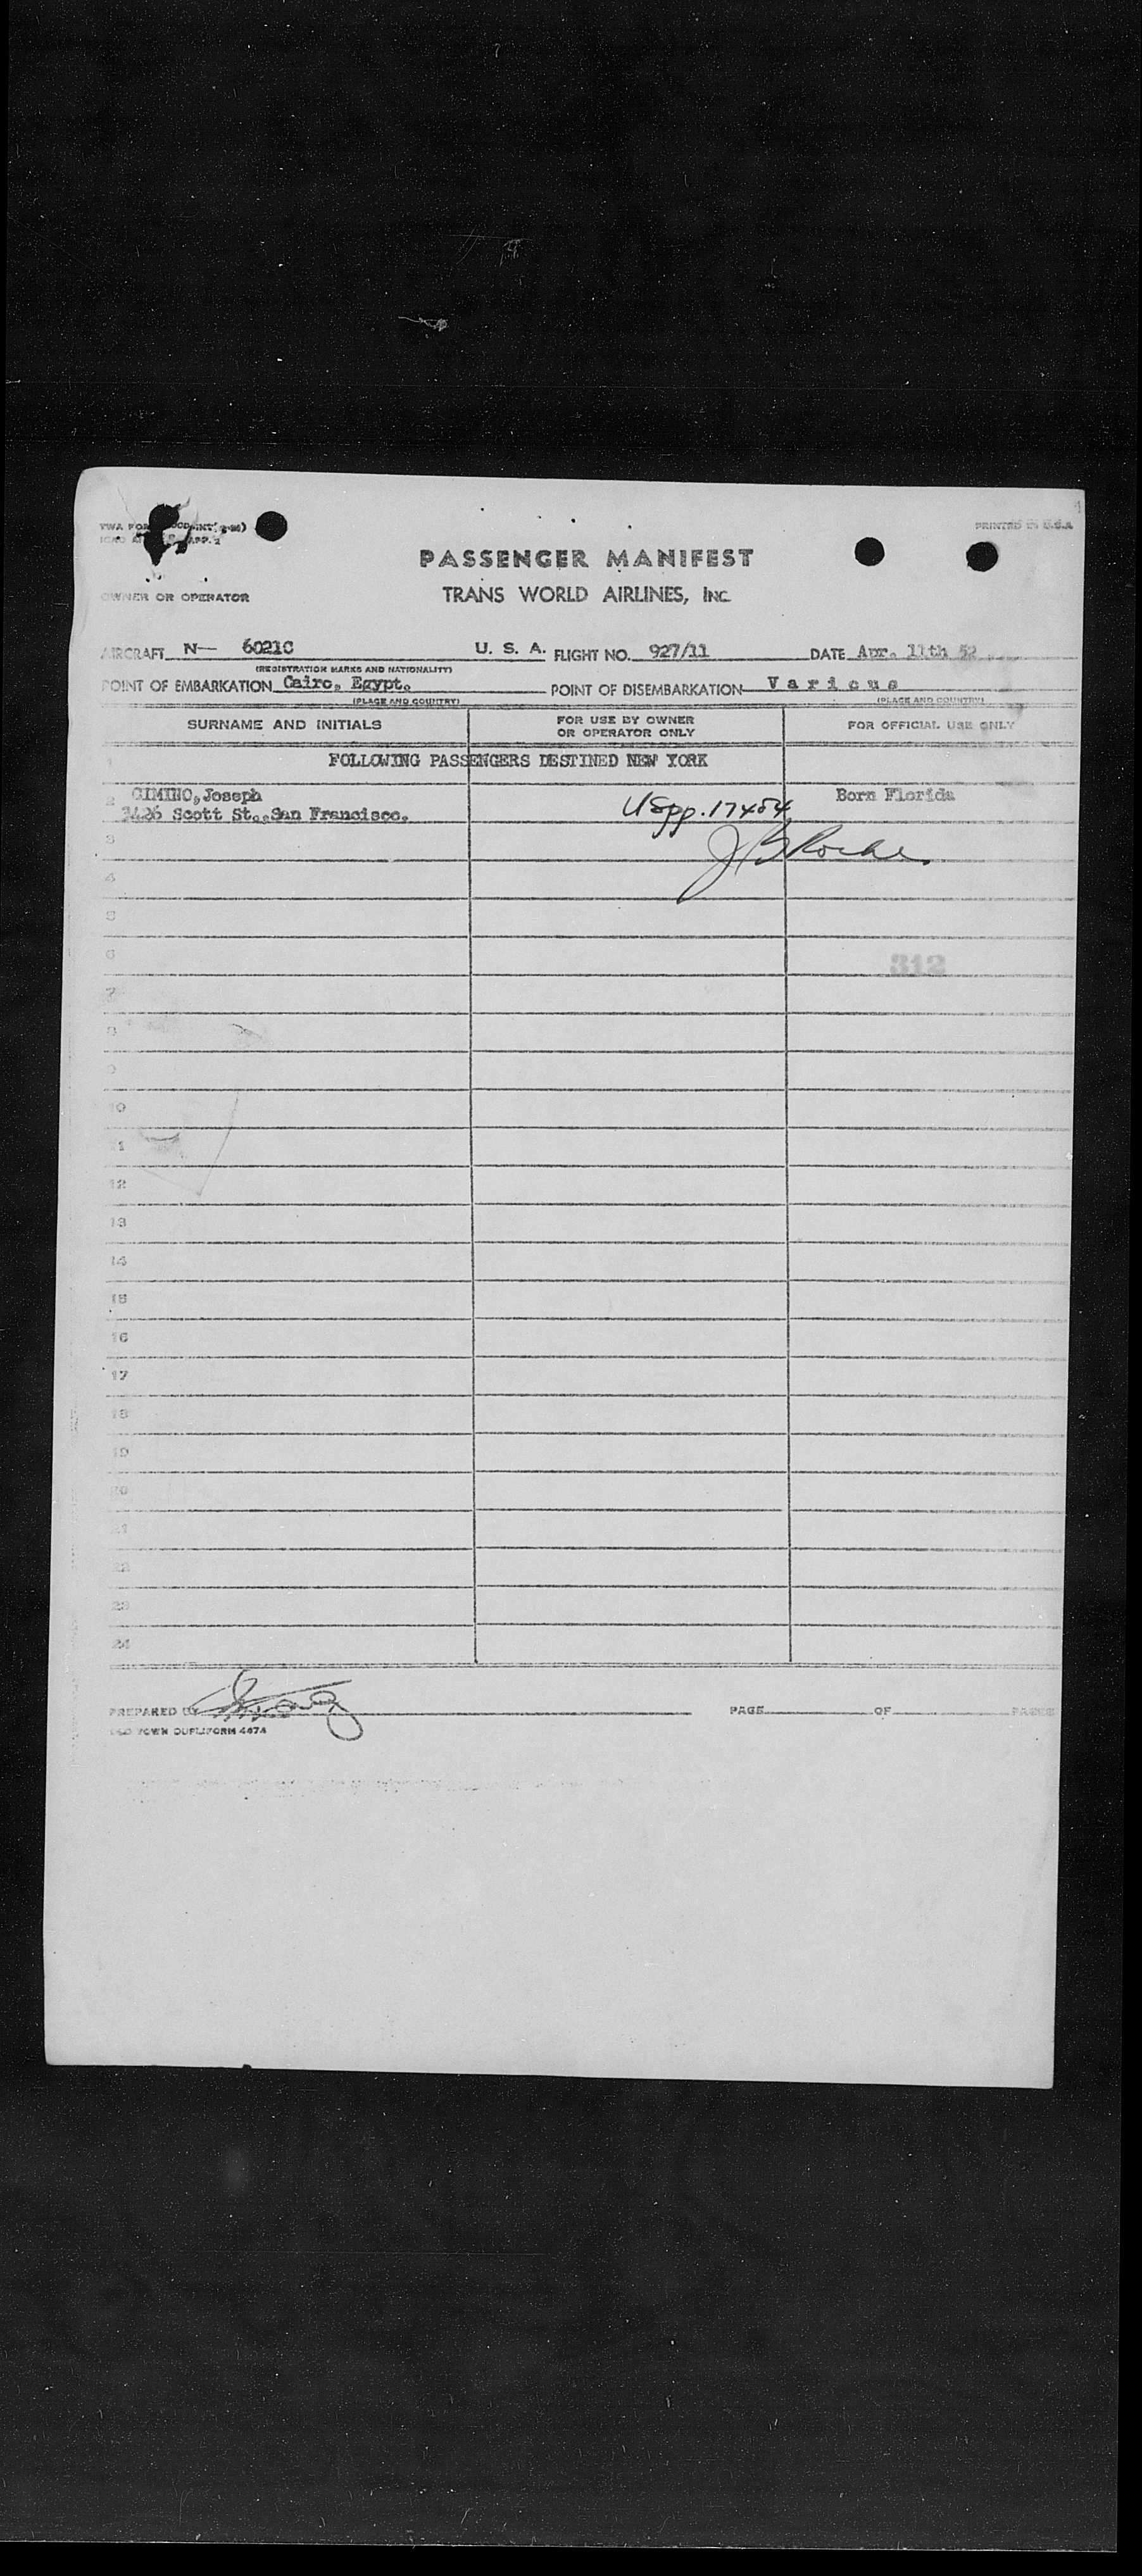 PRINTED IN U.S.A
PASSENGER MANIFEST
OWNER OR OPERATOR TRANS WORLD AIRLINES, INC
AIRCRAFT N— 6021C U. S. A. FLIGHT NO. 927/11 DATE Apr. 11th 52
(REGISTRATION MARKS AND NATIONALITY)
POINT OF EMBARKATION Cairo, Egypt. POINT OF DISEMBARKATION Various
(PLACE AND COUNTRY) (PLACE AND COUNTRY)
SURNAME AND INITIALS FOR USE BY OWNER OR OPERATOR ONLY FOR OFFICIAL USE ONLY
1 FOLLOWING PASSENGERS DESTINED NEW YORK
2 CIMINO, Joseph USpp. 17484 Born Florida
Scott St., San Francisco.
3
4
5
6 312
7
8
9
10
11
12
13
14
15
16
17
18
19
20
21
22
23
24
PREPARED BY PAGE OF PAGES
OLD TOWN DUPLIFORM 4674